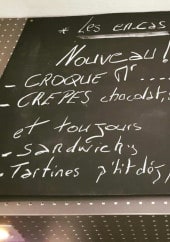 * Les en.cas
Nouveau!
- CROQUE Mr.....
- CRÊPES chocolat,
et toujours
- Sandwichs
- Tartines p'tit déj,